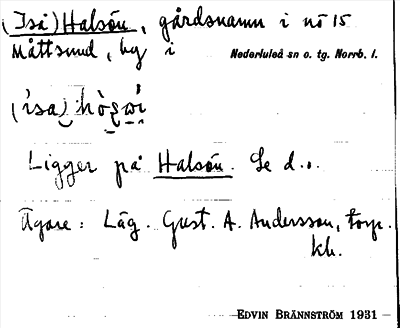 (Iså) Halsön, gårdsnamn i nö 15
Måttsund, by i Nederluleå sn o. tg. Norrb. l.
Ligger på Halsön. Se d.o.
Ägare: Läg. Gust. A. Andersson, torp.
kh.
EDVIN BRÄNNSTRÖM 1931